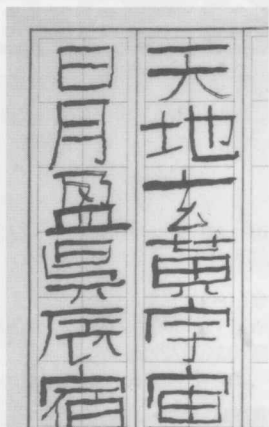 天地玄黃宇宙
日月盈昃辰宿